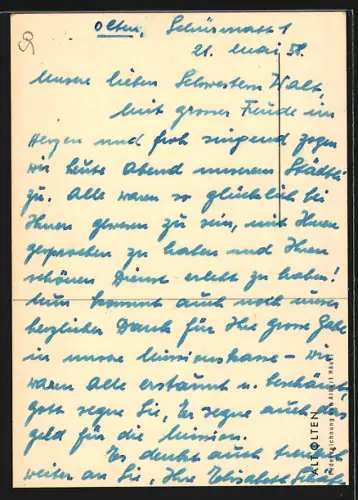 Olten, Schürmatt 1
21. Mai 58.
Unsere lieben Schwestern Walt,
Mit grosser Freude im
Herzen und froh singend zogen
wir heute Abend unserem Städtli
zu. Alle waren so glücklich bei
Ihnen gewesen zu sein, mit Ihnen
gesprochen zu haben und Ihren
schönen Dienst erlebt zu haben!
Nun kommt auch noch unser
herzlicher Dank für Ihre grosse Gabe
in unsere Missionskasse – wir
waren alle erstaunt u. beschämt,
Gott segne Sie, Er segne auch das
Geld für die Mission.
Es denkt auch
weiter an Sie, Ihre Elisabeth
ALT OLTEN
Federzeichnung von Albert Häusl